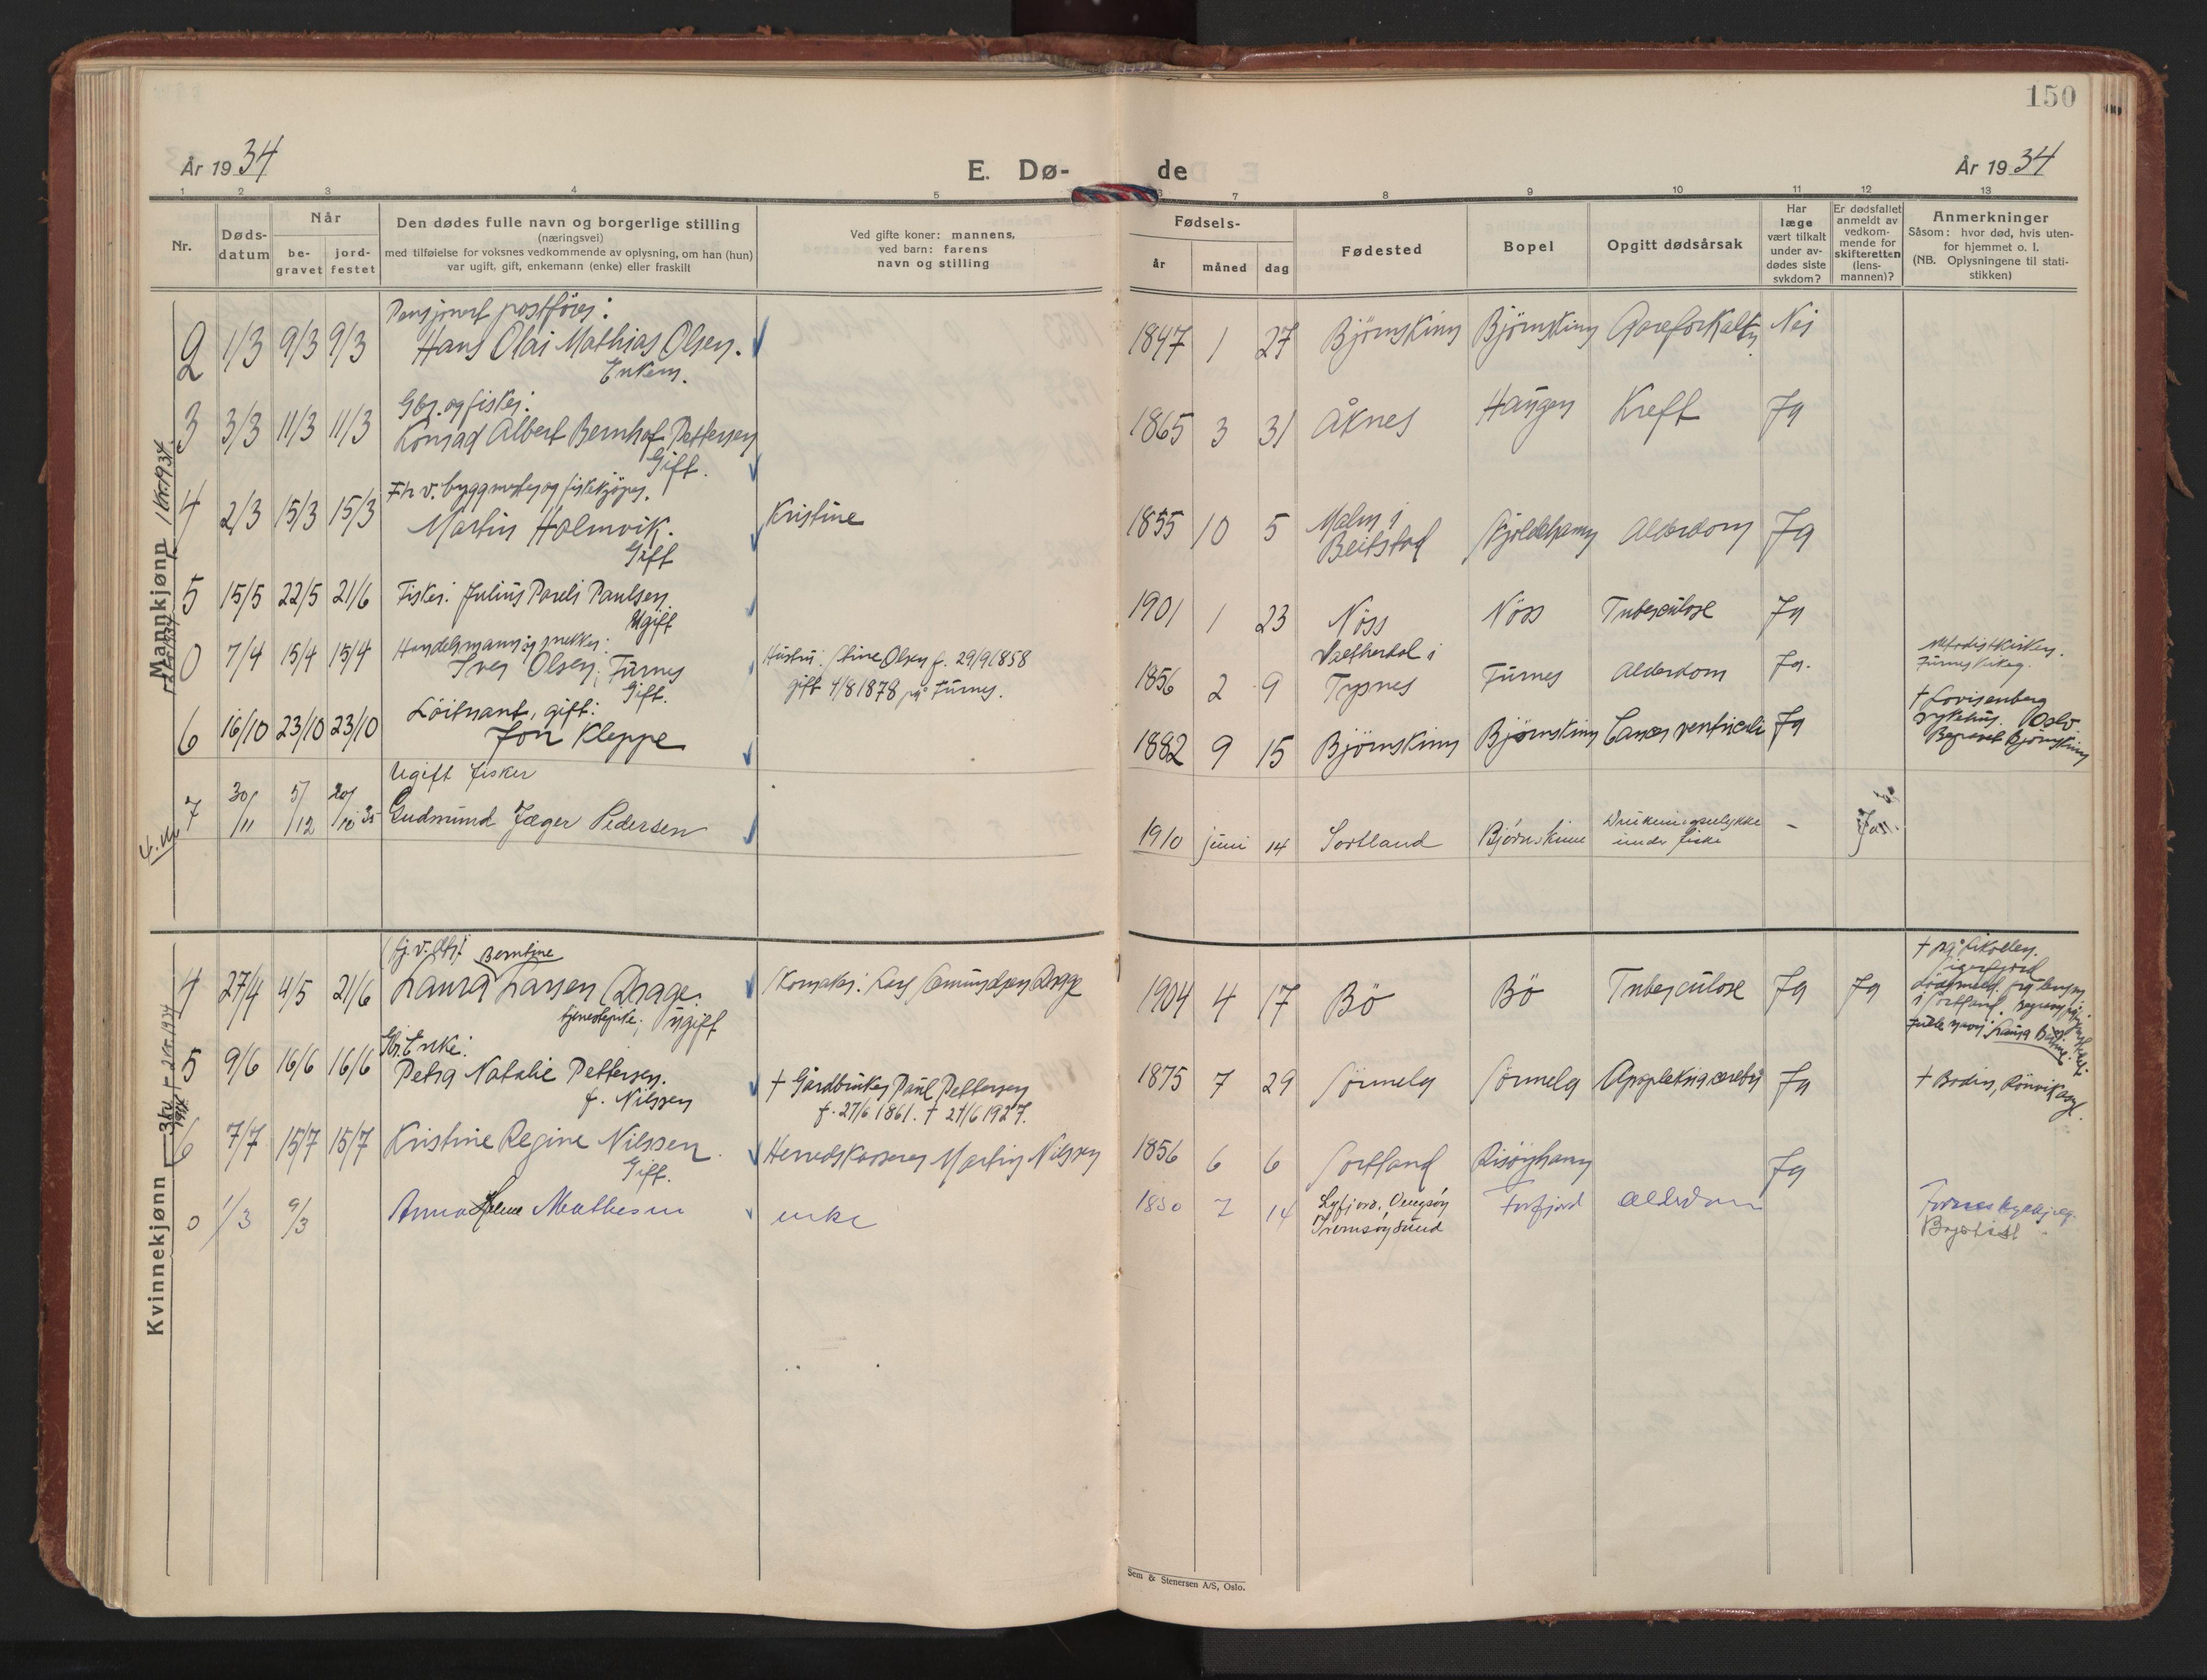 150
År 19 34
E. Dø-
de
År 19 34
1 2 3 4 5 6 7 8 9 10 11 12 13
Nr.
Døds-
datum
Når
be-
gravet
jord-
festet
Den dødes fulle navn og borgerlige stilling
(næringsvei)
med tilføielse for voksnes vedkommende av oplysning, om han (hun)
var ugift, gift, enkemann (enke) eller fraskilt
Ved gifte koner: mannens,
ved barn: farens
navn og stilling
Fødsels-
år
måned
dag
Fødested
Bopel
Opgitt dødsårsak
Har
læge
vært tilkalt
under av-
dødes siste
sykdom?
Er dødsfallet
anmeldt av
vedkom-
mende for
skifteretten
(lens-
mannen)?
Anmerkninger
Såsom: hvor død, hvis uten-
for hjemmet o. l.
(NB. Oplysningene til stati-
stikken)
Mannkjønn
1 kv. 1934
Pensjonert postfører:
2 1/3 9/3 9/3 Hans Olai Mathias Olsen. 1847 1 27 Bjørnskinn Bjørnskinn Nei
Enkem.
Gbr. og fisker:
3 3/3 11/3 11/3 Konrad Albert Bernhof Pettersen 1865 3 31 Åknes Haugen Kreft Ja
Gift.
Fh v. byggmester og fiskekjøper.
4 2/3 15/3 15/3 Martin Holmvik. Kristine 1855 10 5 Malm i
Beitstad Skjoldehamn Alderdom Ja
Gift
5 15/5 22/5 21/6 Fisker: Julius Pareli Paulsen. 1901 1 23 Nöss Nöss Tuberculose Ja
Ugift
Handelsmann og snekker:
0 7/4 15/4 15/4 Iver Olsen, Furnes Hustru: Stine Olsen f. 29/9 1858
Gift. gift 4/8 1878 på Furnes.
1856 2 9 Trysnes Furnes Alderdom Ja.
Metodistkirken.
Löitnant, gift:
6 16/10 23/10 23/10 Jon Kleppe 1882 9 15 Bjørnskinn Bjørnskinn Cancer ventriculi Ja
† Lovisenberg
sykehus. Oslo.
Begravet Bjørnskinn
Ugift fisker
7 30/11 5/12 20/10 35 Gudmund Jæger Pedersen 1910 juni 14 Sortland Bjørnskinn Drukningsulykke
under fiske - Jan.
Kvinnekjønn
Berntine
4 27/4 4/5 21/6 Laura Larsen Drage. Skomaker: Lars Amundsen Drage 1904 4 17 Bö Bö Tuberculose Ja Ja
tjenestepike; ugift
Gbr. Enke:
5 9/6 16/6 16/6 Petra Natalie Pettersen. † Gårdbruker Paul Pettersen
f. Nilssen f. 27/6 1861. † 27/6 1927.
1875 7 29 Sørmela Sørmela Ja † Bodin, Rönvik asyl.
6 7/7 15/7 15/7 Kristine Regine Nilssen. Herredskasserer Martin Nilssen 1856 6 6 Sortland Risøyhamn Ja
Gift.
0 1/3 9/3 Anna Helene Mathesen enke 1850 7 14
Tromsøysund Forfjord Alderdom
Baptist
Sem & Stenersen A/S, Oslo.